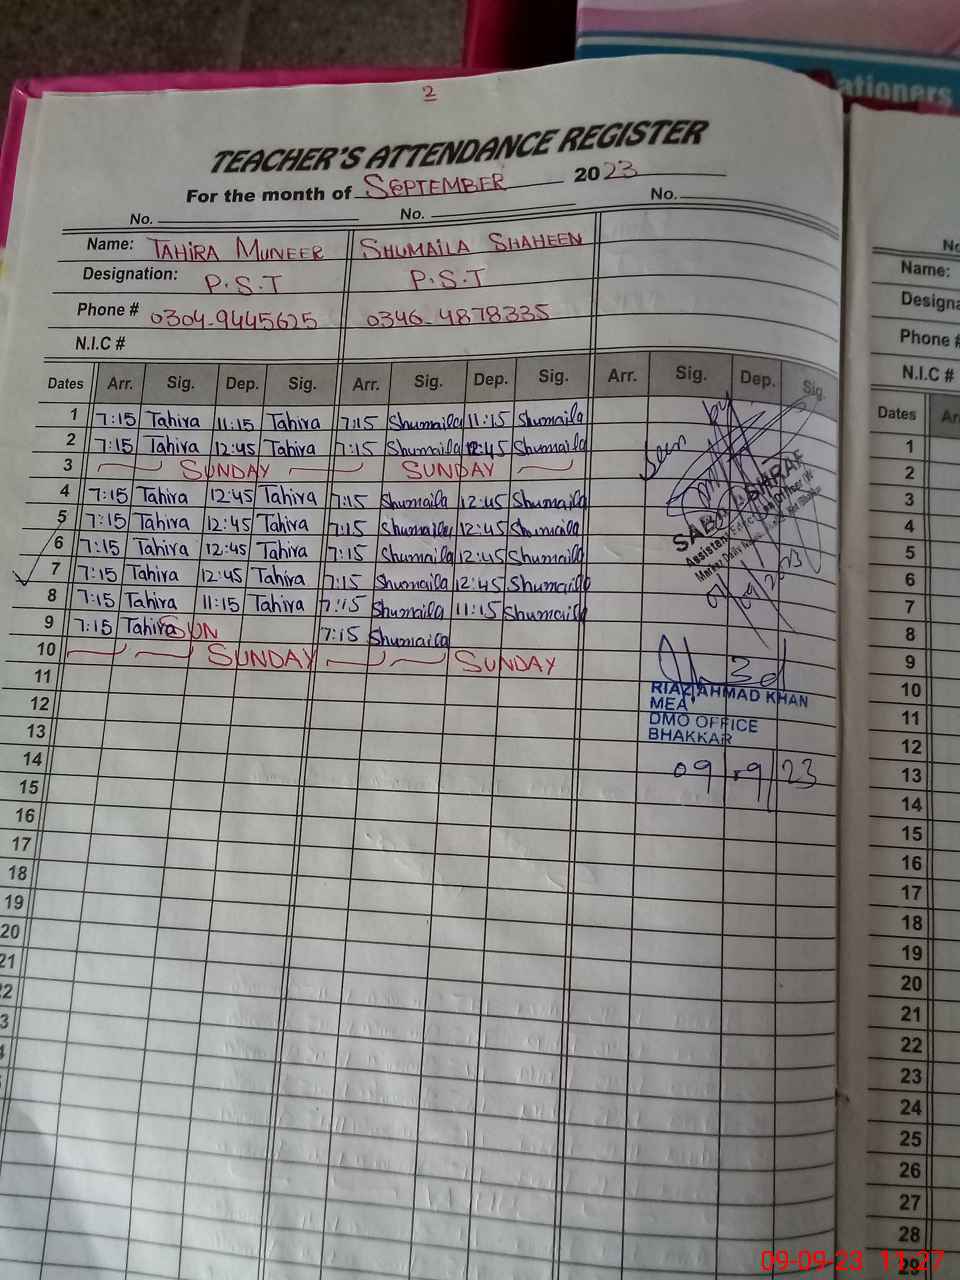 ationers
2
TEACHER'S ATTENDANCE REGISTER
For the month of SEPTEMBER 2023
No. No. No.
Name: TAHIRA MUNEER SHUMAILA SHAHEEN
Designation: P.S.T P.S.T
Phone # 0304-9445625 0346-4878335
N.I.C #
Dates Arr. Sig. Dep. Sig. Arr. Sig. Dep. Sig. Arr. Sig. Dep. Sig.
1 7:15 Tahira 11:15 Tahira 7:15 Shumaila 11:15 Shumaila
2 7:15 Tahira 12:45 Tahira 7:15 Shumaila 12:45 Shumaila
3 SUNDAY SUNDAY
4 7:15 Tahira 12:45 Tahira 7:15 Shumaila 12:45 Shumaila
5 7:15 Tahira 12:45 Tahira 7:15 Shumaila 12:45 Shumaila
6 7:15 Tahira 12:45 Tahira 7:15 Shumaila 12:45 Shumaila
7 7:15 Tahira 12:45 Tahira 7:15 Shumaila 12:45 Shumaila
8 7:15 Tahira 11:15 Tahira 7:15 Shumaila 11:15 Shumaila
9 7:15 Tahira SUN 7:15 Shumaila
10 SUNDAY SUNDAY
11
12
13
14
15
16
17
18
19
20
21
Seen by
Assistant
RIAZ AHMAD KHAN
MEA
DMO OFFICE
BHAKKAR
09.9.23
Name:
Phone #
N.I.C #
Dates
1
2
3
4
5
6
7
8
9
10
11
12
13
14
15
16
17
18
19
20
21
22
23
24
25
26
27
28
29
09-09-23 11:27